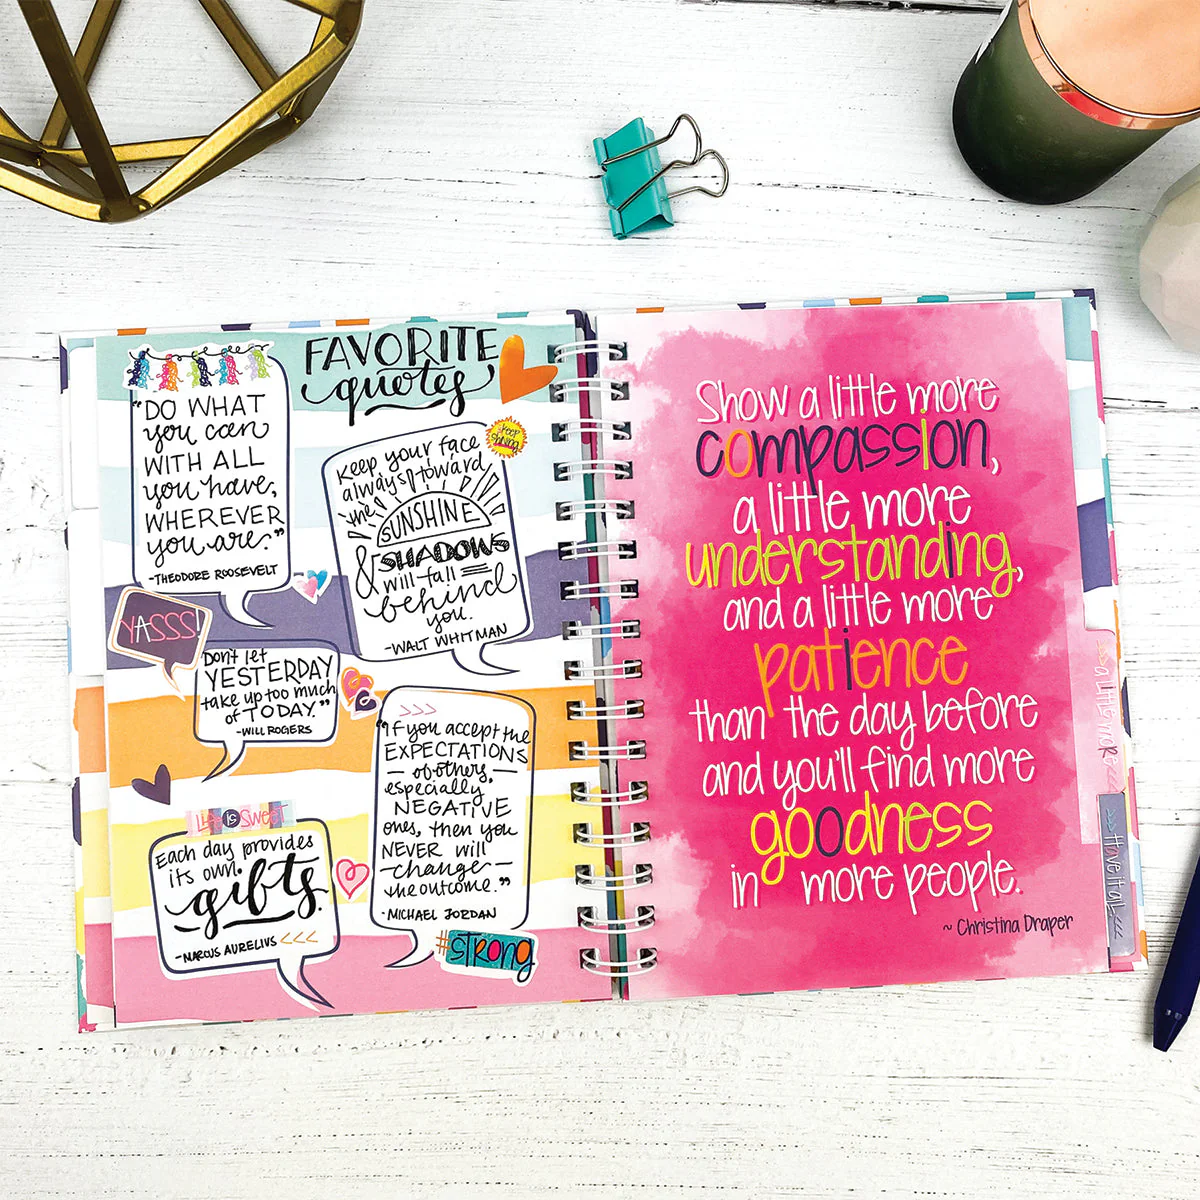 FAVORITE
quotes
"DO WHAT
you can
WITH ALL
you have,
WHEREVER
you are."
-THEODORE ROOSEVELT
keep
shining
Keep your face
always toward
the
SUNSHINE
& SHADOWS
will fall
behind
you.
-WALT WHITMAN
YASSS!
Don't let
YESTERDAY
take up too much
of TODAY."
-WILL ROGERS
>>>
"If you accept the
EXPECTATIONS
of others,
especially
NEGATIVE
ones, then you
NEVER will
change
the outcome."
-MICHAEL JORDAN
#STRONG
Life is Sweet
Each day provides
its own
gifts.
-MARCUS AURELIUS <<<
Show a little more
compassion,
a little more
understanding,
and a little more
patience
than the day before
and you'll find more
goodness
in more people.
~ Christina Draper
>>> a little more <<<
>>> Have it all <<<